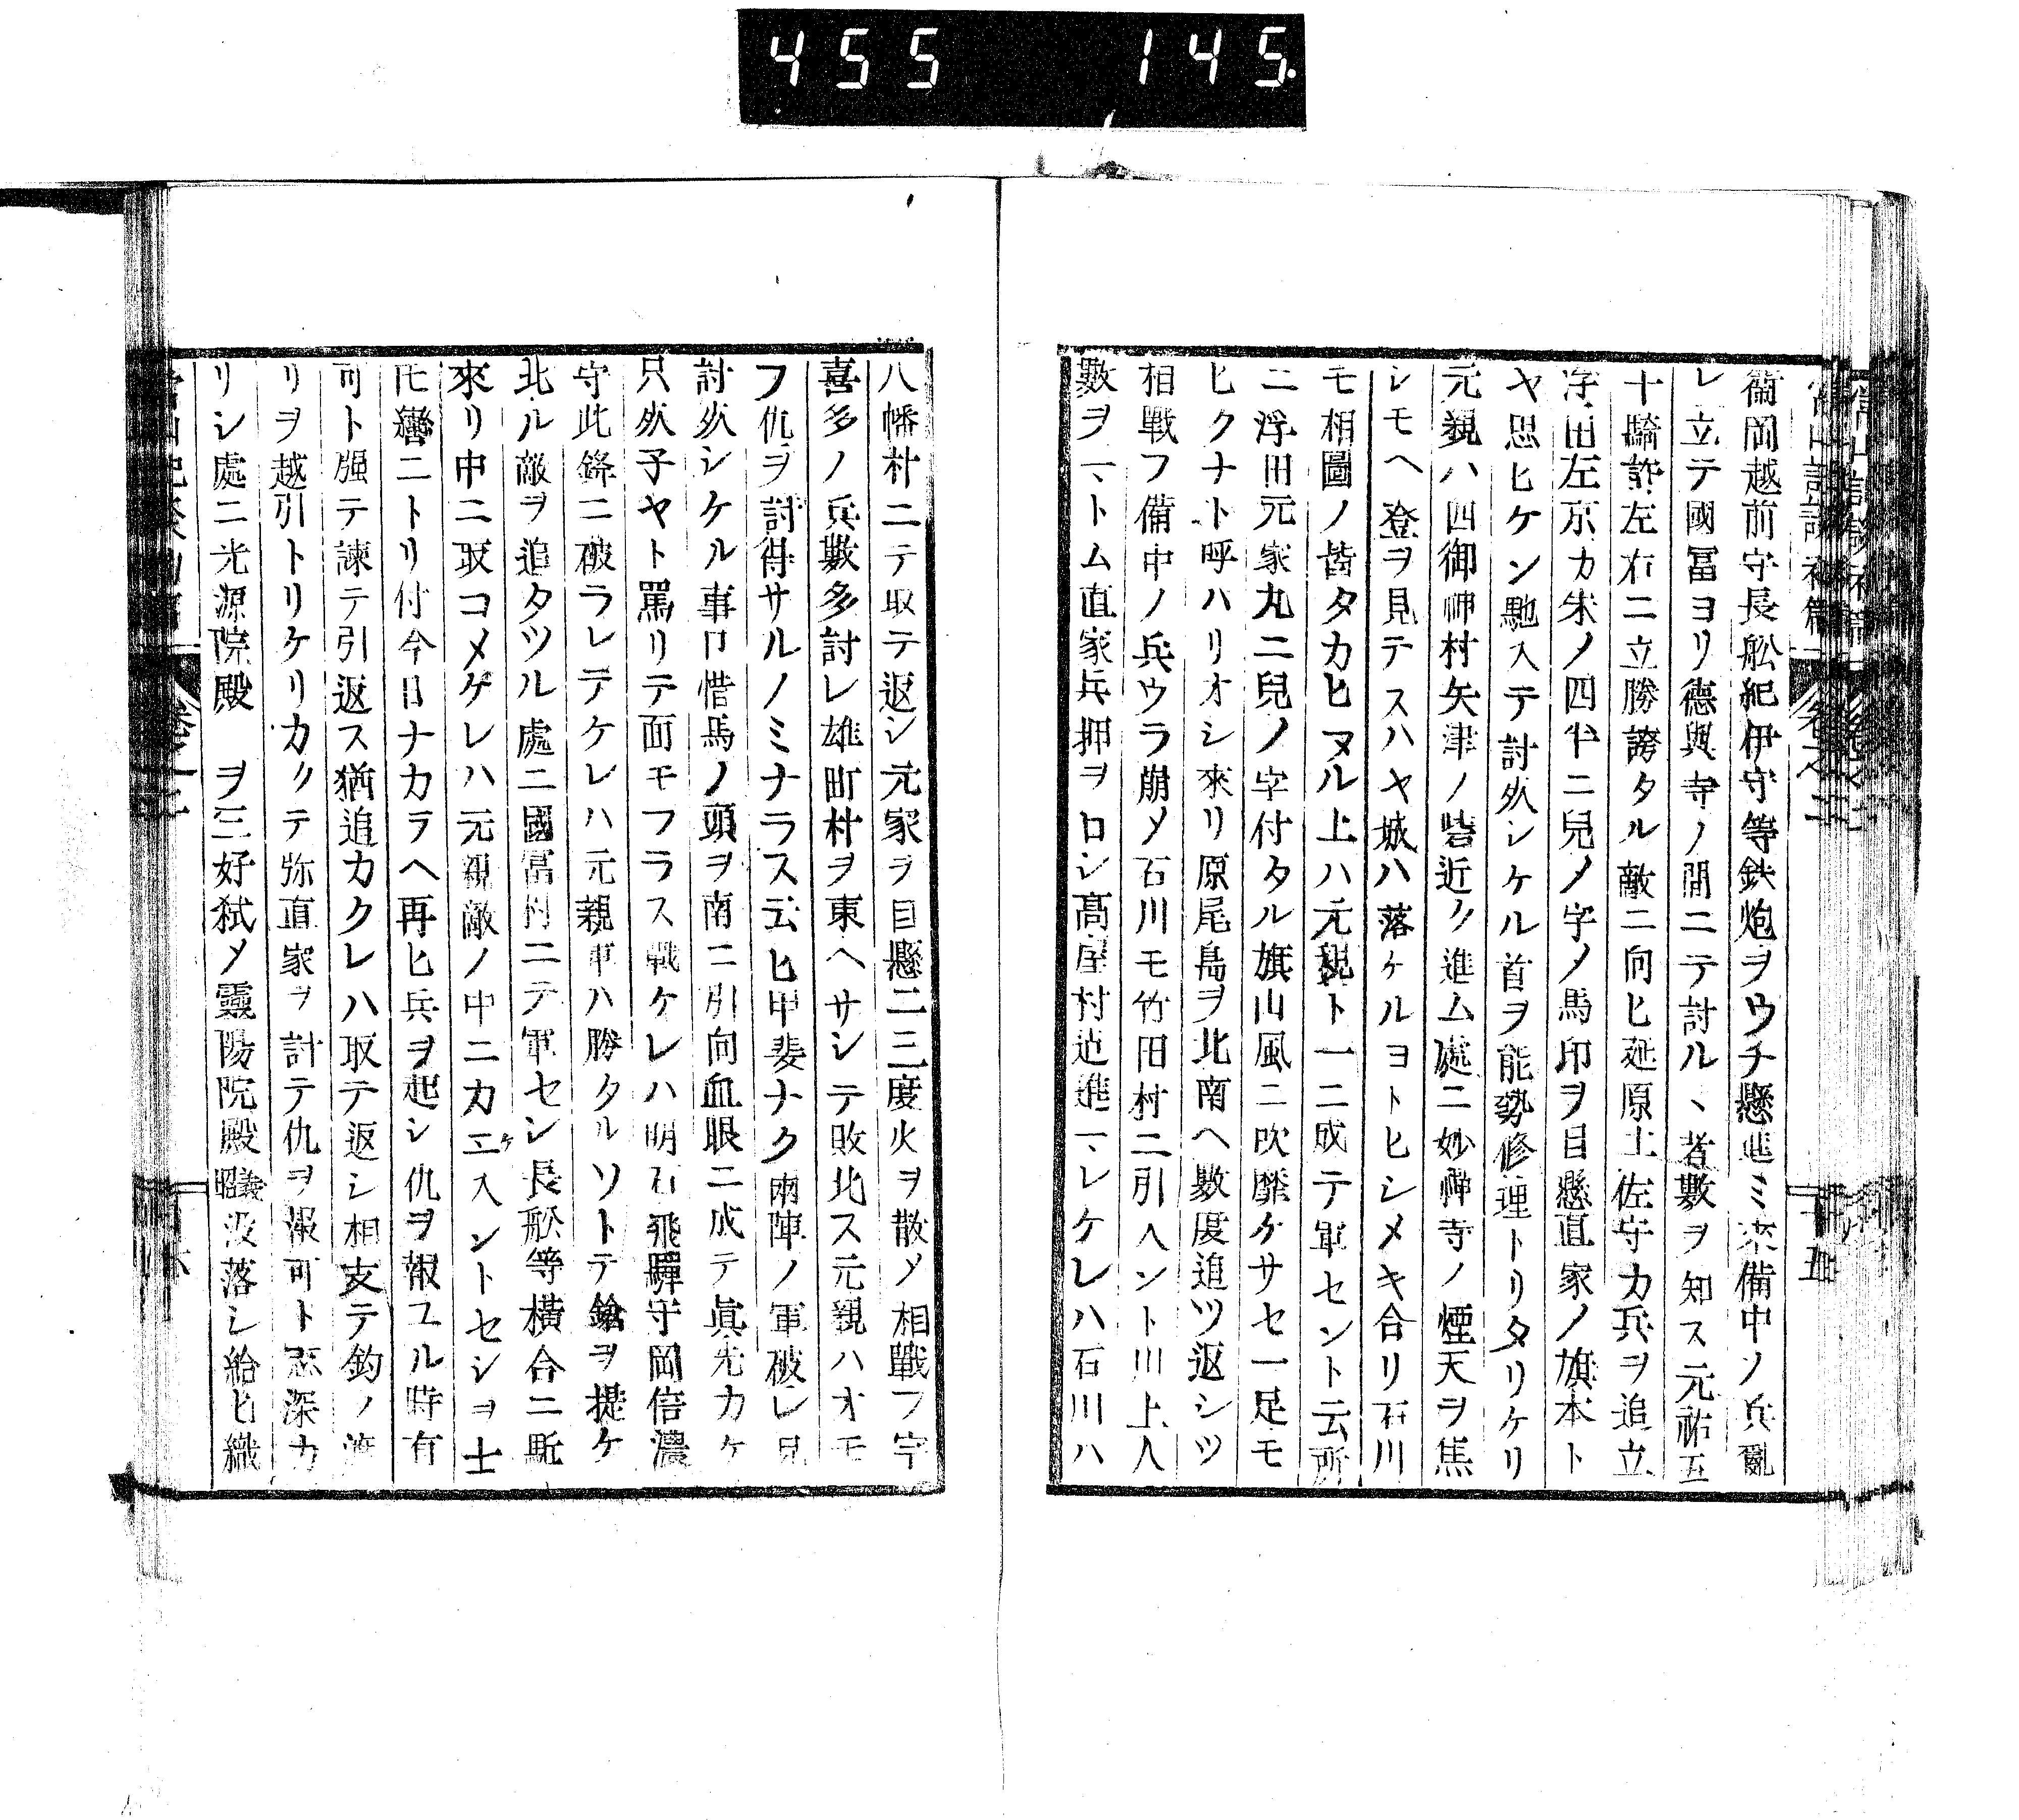 455 145.
衞岡越前守長舩紀伊守等鉄炮ヲウチ懸進ミ來備中ノ兵亂
レ立テ國冨ヨリ德與寺ノ間ニテ討ルヽ者數ヲ知ス元祐五
十騎許左右ニ立勝誇タル敵ニ向ヒ延原土佐守カ兵ヲ追立
浮田左京カ朱ノ四半ニ兒ノ字ノ馬印ヲ目懸直家ノ旗本ト
ヤ思ヒケン馳入テ討死シケル首ヲ能勢修理トリタリケリ
元親ハ四御神村矢津ノ砦近ク進ム處ニ妙禅寺ノ煙天ヲ焦
シモヘ登ヲ見テスハヤ城ハ落ケルヨトヒシメキ合リ石川
モ相圖ノ皆タカヒヌル上ハ元親ト一ニ成テ軍セント云所
ニ浮田元家丸ニ兒ノ字付タル旗山風ニ吹靡ケサセ一足モ
ヒクナト呼ハリオシ來リ原尾島ヲ北南ヘ數度追ツ返シツ
相戰フ備中ノ兵ウラ崩メ石川モ竹田村ニ引ヘント川上人
數ヲマトム直家兵押ヲロシ髙屋村迄進マレケレハ石川ハ
八幡村ニテ取テ返シ元家ヲ目懸二三度火ヲ散メ相戰フ宇
喜多ノ兵數多討レ雄町村ヲ東ヘサシテ敗北ス元親ハオモ
フ仇ヲ討得サルノミナラス云ヒ甲斐ナク兩陣ノ軍破レ見
討死シケル事口惜馬ノ頭ヲ南ニ引向血眼ニ成テ眞先カケ
只死子ヤト罵リテ面モフラス戰ケレハ明石飛驒守岡信濃
守此鋒ニ破ラレテケレハ元親軍ハ勝タルソトテ鎗ヲ提ケ
北ル敵ヲ追タツル處ニ國冨村ニテ軍セシ長舩等横合ニ駈
來リ中ニ取コメケレハ元親敵ノ中ニカケ入ントセシヲ士
𪜈轡ニトリ付今日ナカラヘ再ヒ兵ヲ起シ仇ヲ報ユル時有
可ト强テ諫テ引返ス猶追カクレハ取テ返シ相支テ釣ノ渡
リヲ越引トリケリカクテ弥直家ヲ計テ仇ヲ報可ト志深カ
リシ處ニ光源院殿 ヲ三好弑メ靈陽院殿義昭没落シ給ヒ織